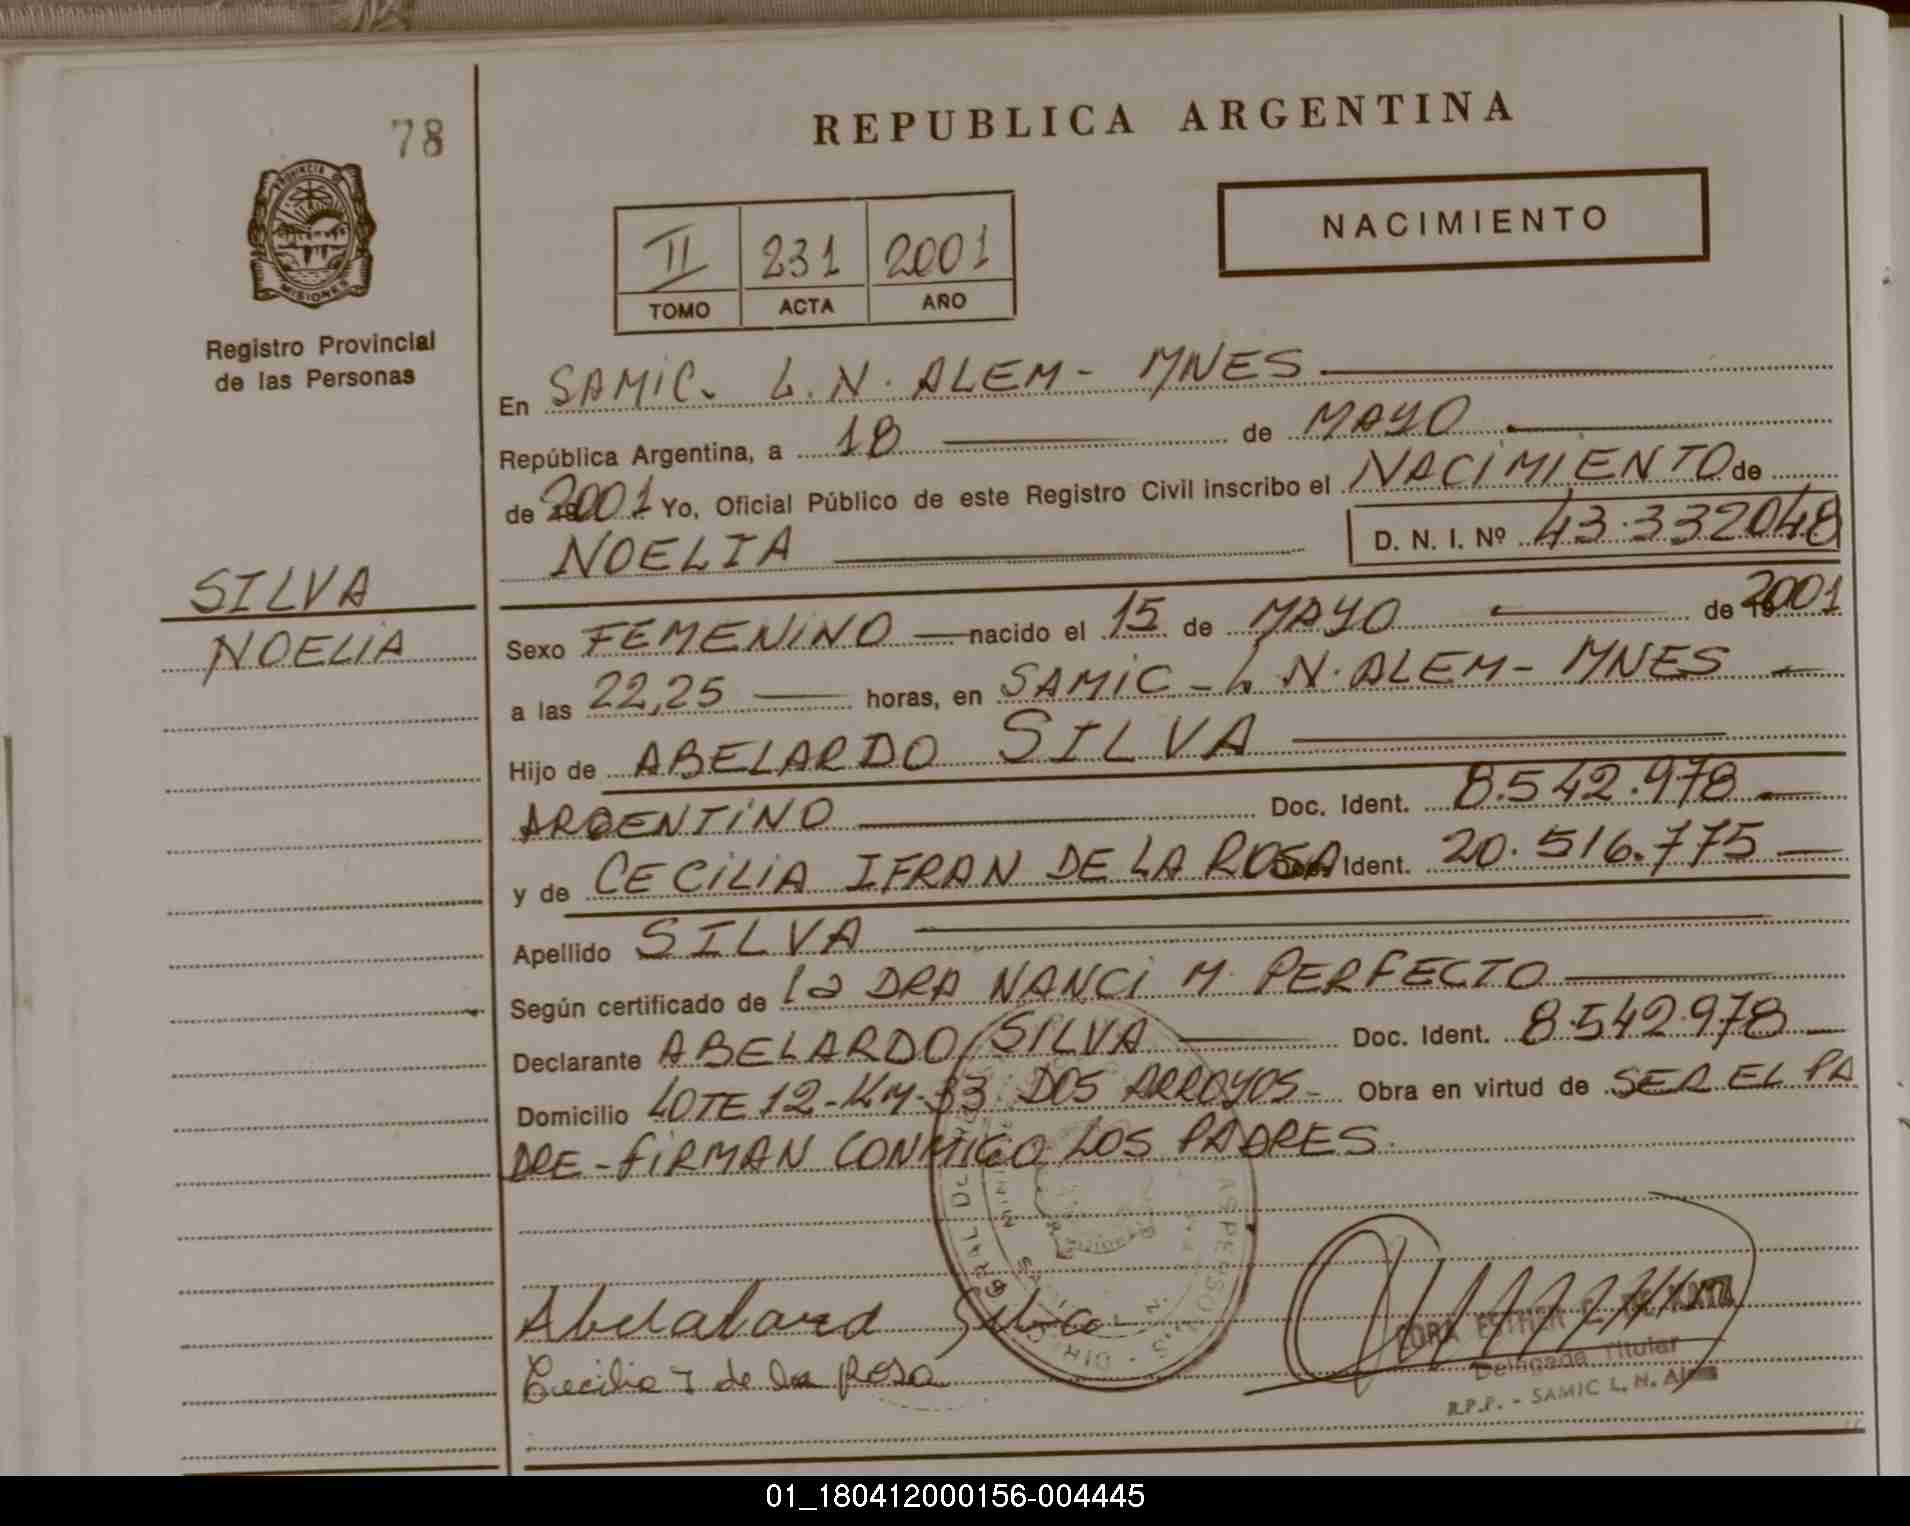 78
REPUBLICA ARGENTINA
PROVINCIA DE
MISIONES
Registro Provincial
de las Personas
NACIMIENTO
II 231 2001
TOMO ACTA AÑO
En SAMIC. L.N. ALEM - MNES
República Argentina, a 18 de MAYO
de 2001 Yo, Oficial Público de este Registro Civil inscribo el NACIMIENTO de
NOELIA D. N. I. Nº 43.332048
SILVA
NOELIA
Sexo FEMENINO nacido el 15 de MAYO de 2001
a las 22,25 horas, en SAMIC - L N. ALEM - MNES
Hijo de ABELARDO SILVA
ARGENTINO Doc. Ident. 8.542.978
y de CECILIA IFRAN DE LA ROSA Doc. Ident. 20.516.775
Apellido SILVA
Según certificado de la DRA NANCI M. PERFECTO
Declarante ABELARDO SILVA Doc. Ident. 8.542.978
Domicilio LOTE 12 - KM - 33 DOS ARROYOS - Obra en virtud de SER EL PA
DRE - FIRMAN CONMIGO LOS PADRES.
Abelalard Silva
Cecilia I de la Rosa
ESTHER
Delegada Titular
R.P.P. - SAMIC L. N. Alem
01_180412000156-004445